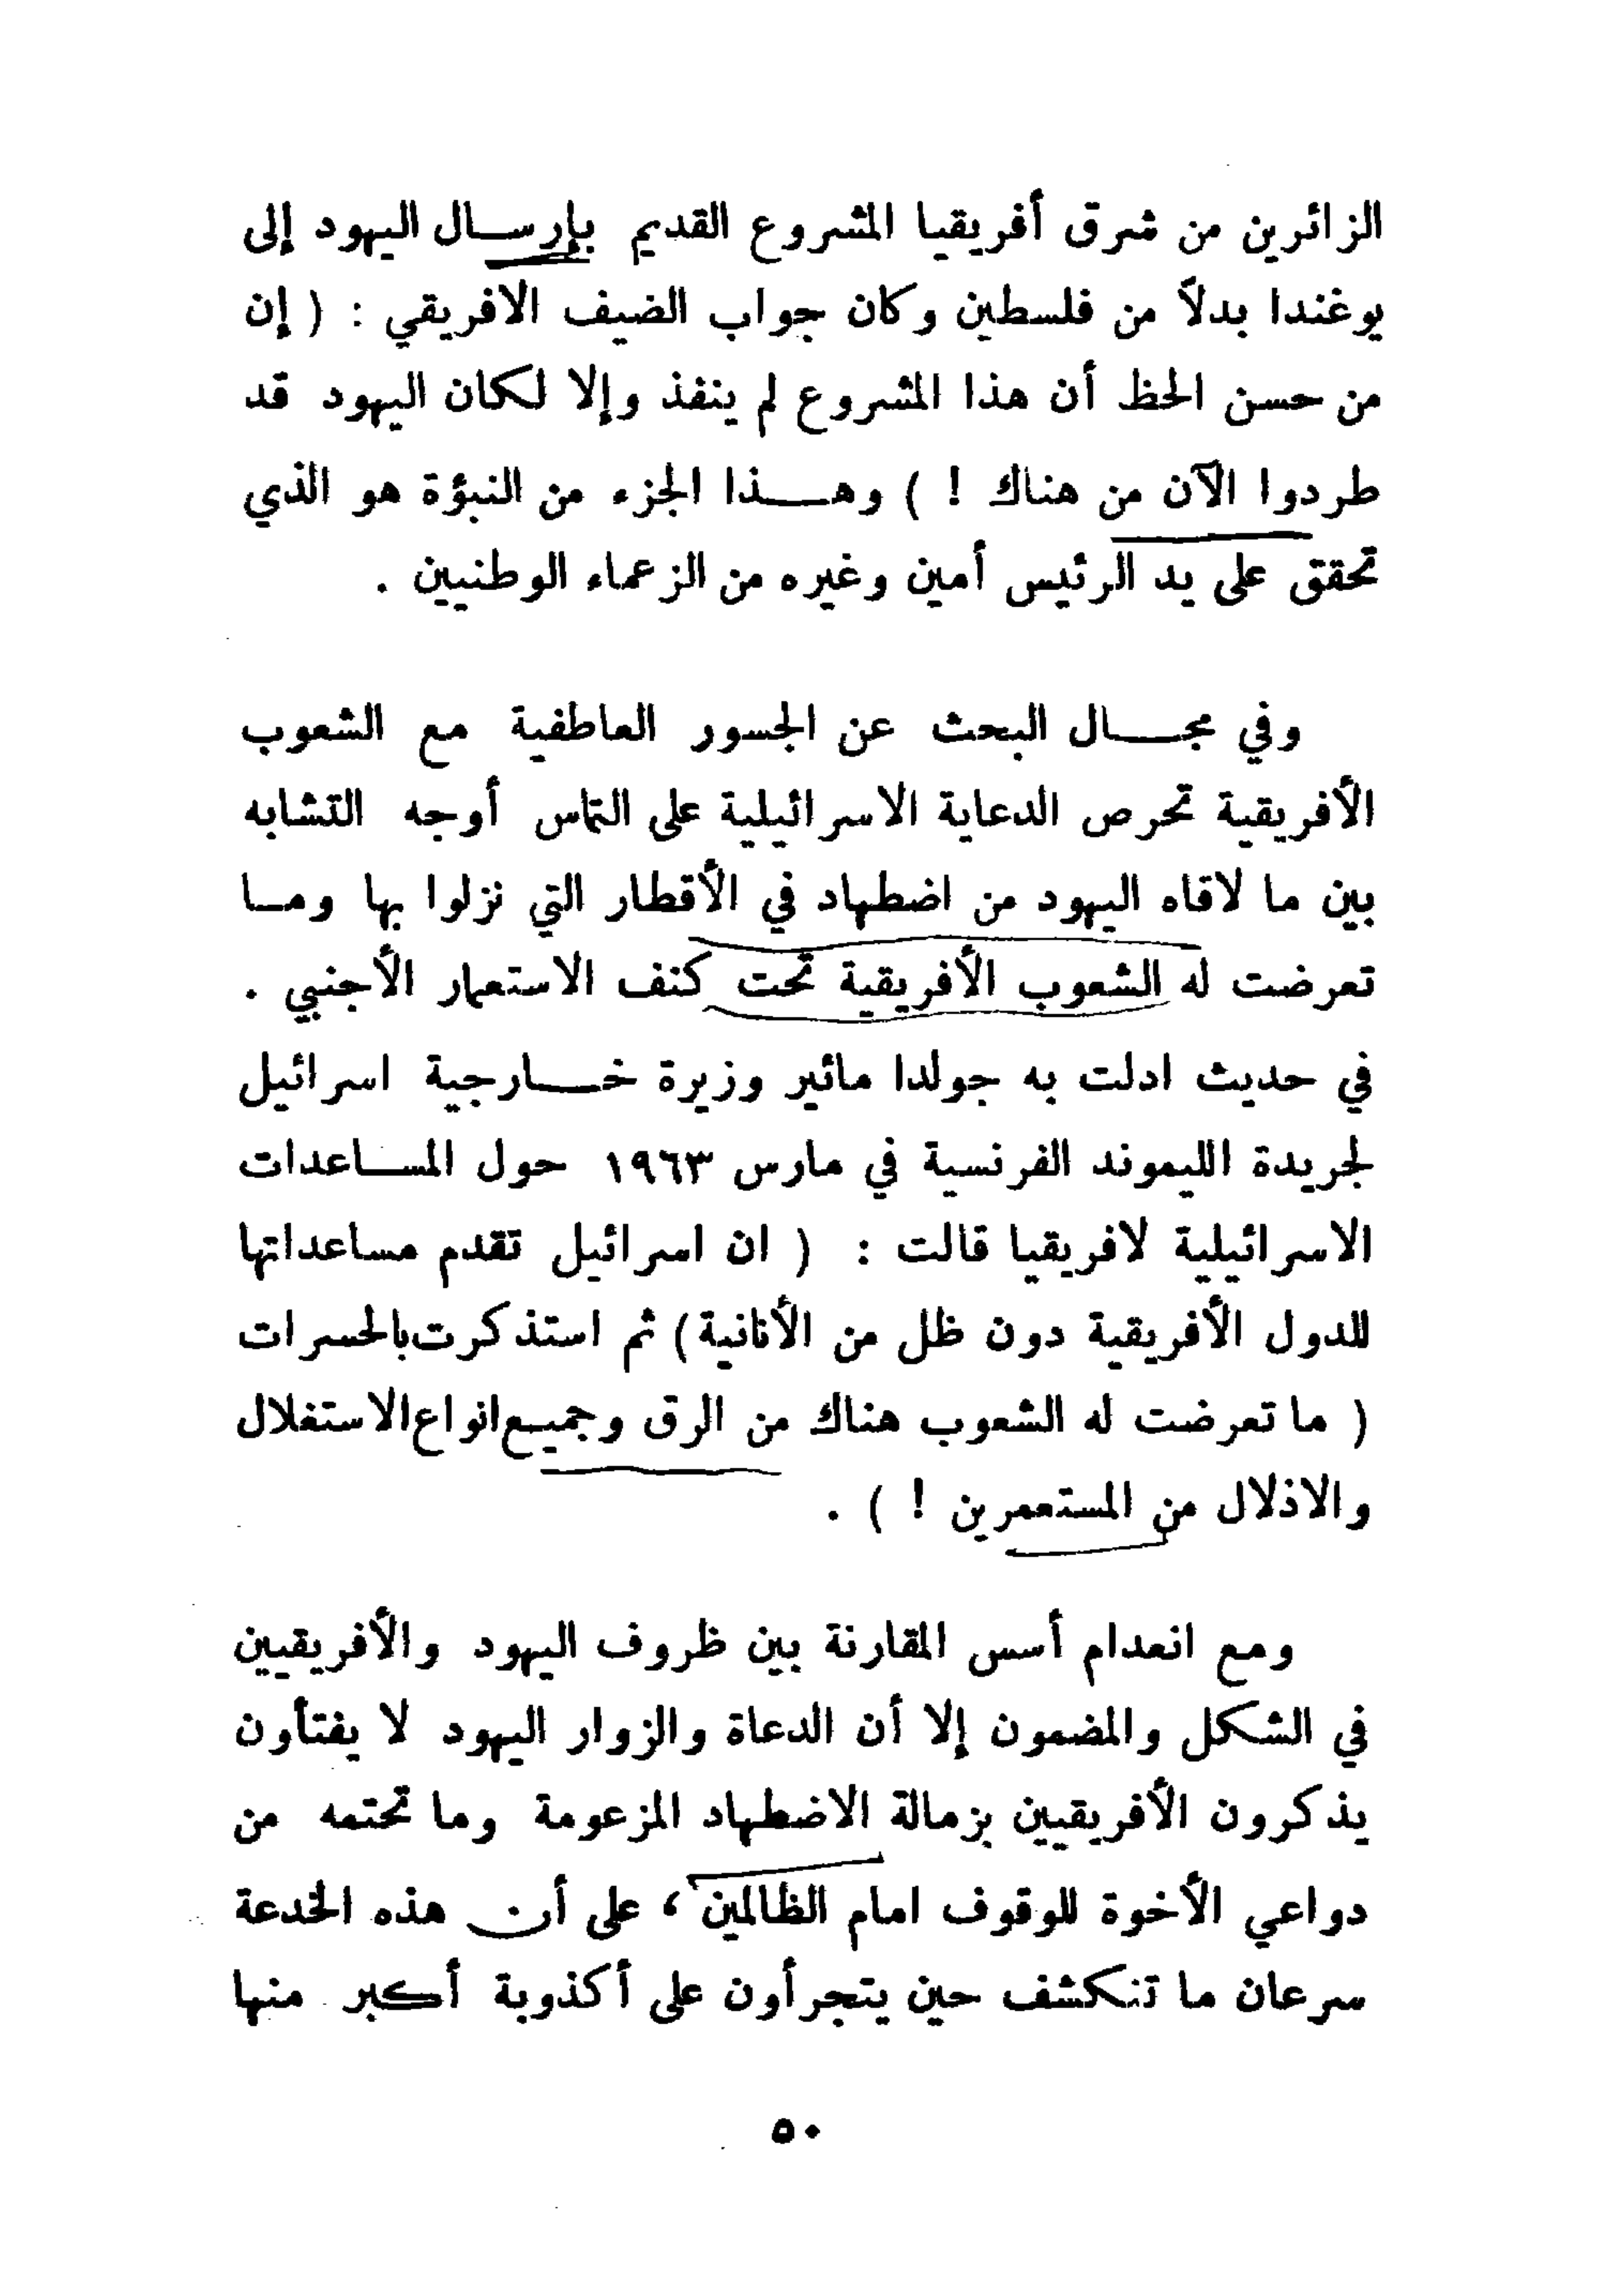 الزائرين من شرق أفريقيا المشروع القديم بإرسال اليهود إلى
يوغندا بدلاً من فلسطين وكان جواب الضيف الافريقي : ( إن
من حسن الحظ أن هذا المشروع لم ينفذ وإلا لكان اليهود قد
طردوا الآن من هناك ! ) وهذا الجزء من النبؤة هو الذي
تحقق على يد الرئيس أمين وغيره من الزعماء الوطنيين .
وفي مجال البحث عن الجسور العاطفية مع الشعوب
الأفريقية تحرص الدعاية الاسرائيلية على التماس أوجه التشابه
بين ما لاقاه اليهود من اضطهاد في الأقطار التي نزلوا بها وما
تعرضت له الشعوب الأفريقية تحت كنف الاستعمار الأجنبي .
في حديث ادلت به جولدا مائير وزيرة خارجية اسرائيل
لجريدة الليموند الفرنسية في مارس ١٩٦٣ حول المساعدات
الاسرائيلية لافريقيا قالت : ( ان اسرائيل تقدم مساعداتها
للدول الأفريقية دون ظل من الأنانية ) ثم استذكرت بالحسرات
( ما تعرضت له الشعوب هناك من الرق وجميع انواع الاستغلال
والاذلال من المستعمرين ! ) .
ومع انعدام أسس المقارنة بين ظروف اليهود والأفريقيين
في الشكل والمضمون إلا أن الدعاة والزوار اليهود لا يفتأون
يذكرون الأفريقيين بزمالة الاضطهاد المزعومة وما تحتمه من
دواعي الأخوة للوقوف امام الظالمين ، على أن هذه الخدعة
سرعان ما تنكشف حين يتجرأون على أكذوبة أكبر منها
٥٠